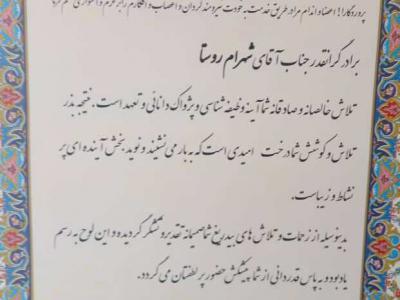 پروردگارا! اعضاء و اندام مرا در طریق خدمت به خودت نیرومند گردان و اعصاب و افکارم را بر عزم و استواری محکم کن
برادر گرانقدر جناب آقای شهرام روستا
تلاش خالصانه و صادقانه شما آینه وظیفه شناسی و پژواک دانائی و تعهد است. نتیجه بذر
تلاش و کوشش شما درخت امیدی است که به بار می نشیند و نوید بخش آینده ای پر
نشاط و زیباست.
بدینوسیله از زحمات و تلاش های بیدریغ شما صمیمانه تقدیر و تشکر گردیده و این لوح به رسم
یادبود و به پاس قدردانی از شما پیشکش حضور پر لطفتان می گردد.